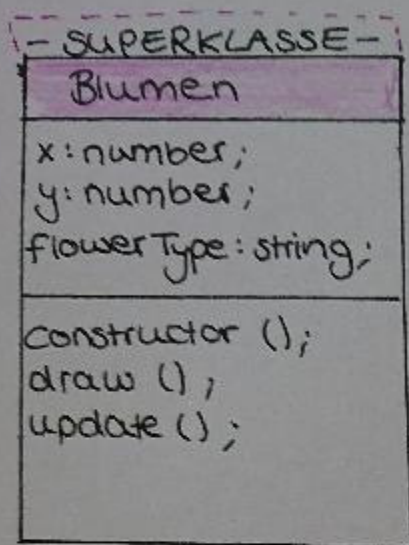 - SUPERKLASSE -
Blumen
x: number;
y: number;
flowerType: string;
constructor ();
draw ();
update ();